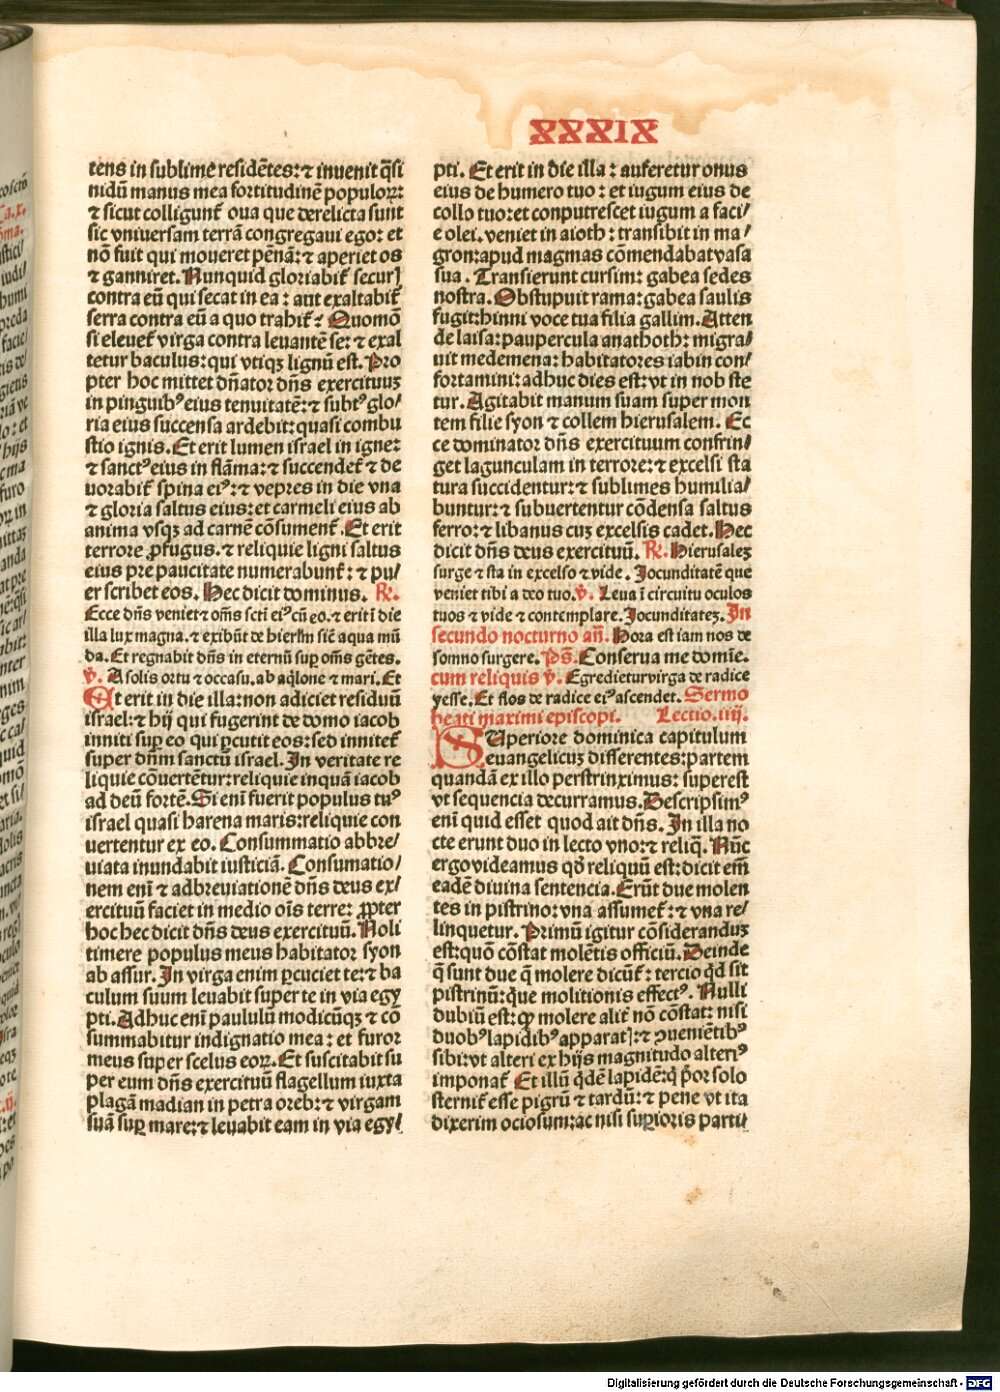 XXXIX
tens in sublime residētes: ⁊ inuenit q̄si
nidū manus mea fortitudinē populoꝝ:
⁊ sicut colligunt᷑ oua que derelicta sunt
sic vniuersam terrā congregaui ego: et
nō fuit qui moueret pēnā: ⁊ aperiet os
⁊ ganniret. Nunquid gloriabit᷑ securꝭ
contra eū qui secat in ea: aut exaltabit᷑
serra contra eū a quo trahit᷑: Quomō
si eleuet᷑ virga contra leuantē se: ⁊ exal
tetur baculus: qui vtiqꝫ lignū est. Pro
pter hoc mittet dn̄ator dn̄s exercituuꝫ
in pinguibꝰ eius tenuitatē: ⁊ subtꝰ glo/
ria eius succensa ardebit: quasi combu
stio ignis. Et erit lumen israel in igne:
⁊ sanctꝰ eius in flāma: ⁊ succendet᷑ ⁊ de
uorabit᷑ spina eiꝰ: ⁊ vepres in die vna
⁊ gloria saltus eius: et carmeli eius ab
anima vsqꝫ ad carnē cōsument᷑. Et erit
terrore ꝓfugus. ⁊ reliquie ligni saltus
eius pre paucitate numerabunt᷑: ⁊ pu/
er scribet eos. Hec dicit dominus. ℟.
Ecce dn̄s veniet ⁊ om̄s scti eiꝰ cū eo. ⁊ erit ī die
illa lux magna. ⁊ exibūt de hierlm̄ sic̄ aqua mū
da. Et regnabit dn̄s in eternū suꝑ om̄s gētes.
℣. A solis ortu ⁊ occasu. ab aq̄lone ⁊ mari. Et
Et erit in die illa: non adiciet residuū
israel: ⁊ hij qui fugerint de domo iacob
inniti suꝑ eo qui ꝑcutit eos: sed innitet᷑
super dn̄m sanctū israel. In veritate re
liquie cōuertētur: reliquie inquā iacob
ad deū fortē. Si enī fuerit populus tuꝰ
israel quasi harena maris: reliquie con
uertentur ex eo. Consummatio abbre/
uiata inundabit iusticiā. Consumatio/
nem enī ⁊ adbreuiationē dn̄s deus ex/
ercituū faciet in medio oīs terre: ꝓpter
hoc hec dicit dn̄s deus exercituū. Noli
timere populus meus habitator syon
ab assur. In virga enim ꝑcuciet te: ⁊ ba
culum suum leuabit super te in via egy
pti. Adhuc enī paululū modicūqꝫ ⁊ cō
summabitur indignatio mea: et furor
meus super scelus eoꝝ. Et suscitabit su
per eum dn̄s exercituū flagellum iuxta
plagā madian in petra oreb: ⁊ virgam
suā suꝑ mare: ⁊ leuabit eam in via egy/
pti. Et erit in die illa: auferetur onus
eius de humero tuo: et iugum eius de
collo tuo: et conputrescet iugum a faci/
e olei. veniet in aioth: transibit in ma/
gron: apud magmas cōmendabat vasa
sua. Transierunt cursim: gabea sedes
nostra. Obstupuit rama: gabea saulis
fugit: hinni voce tua filia gallim. Atten
de laisa: paupercula anathoth: migra/
uit medemena: habitatores iabin con/
fortamini: adhuc dies est: vt in nob ste
tur. Agitabit manum suam super mon
tem filie syon ⁊ collem hierusalem. Ec
ce dominator dn̄s exercituum confrin/
get lagunculam in terrore: ⁊ excelsi sta
tura succidentur: ⁊ sublimes humilia/
buntur: ⁊ subuertentur cōdensa saltus
ferro: ⁊ libanus cuꝫ excelsis cadet. Hec
dicit dn̄s deus exercituū. ℟. Hierusaleꝫ
surge ⁊ sta in excelso ⁊ vide. Jocunditatē que
veniet tibi a deo tuo. ℣. Leua ī circuitu oculos
tuos ⁊ vide ⁊ contemplare. Jocunditateꝫ. In
secundo nocturno an̄. Hora est iam nos de
somno surgere. Ps̄. Conserua me domīe.
cum reliquis ℣. Egredietur virga de radice
yesse. Et flos de radice eiꝰ ascendet. Sermo
beati maximi episcopi. Lectio. iiij.
SUperiore dominica capitulum
euangelicuꝫ differentes: partem
quandā ex illo perstrinximus: superest
vt sequencia decurramus. Descripsimꝰ
enī quid esset quod ait dn̄s. In illa no
cte erunt duo in lecto vno: ⁊ reliq̄. Nūc
ergo videamus qd̄ reliquū est: dicit em̄
eadē diuina sentencia. Erūt due molen
tes in pistrino: vna assumet᷑: ⁊ vna re/
linquetur. Primū igitur cōsideranduꝫ
est: quō cōstat molētis officiū. Deinde
q̄ sunt due q̄ molere dicūt᷑: tercio qd̄ sit
pistrinū: q̄ue molitionis effectꝰ. Nulli
dubiū est: ꝙ molere alit᷑ nō cōstat: nisi
duobꝰ lapidibꝰ apparatꝭ: ⁊ ꝯuenietibꝰ
sibi: vt alteri ex hijs magnitudo alteriꝰ
imponat᷑ Et illū q̄dē lapidē: q̄ p̄or solo
sternit᷑ esse pigrū ⁊ tardū: ⁊ pene vt ita
dixerim ociosum: ac nisi suꝑioris parti/
Digitalisierung gefördert durch die Deutsche Forschungsgemeinschaft - DFG